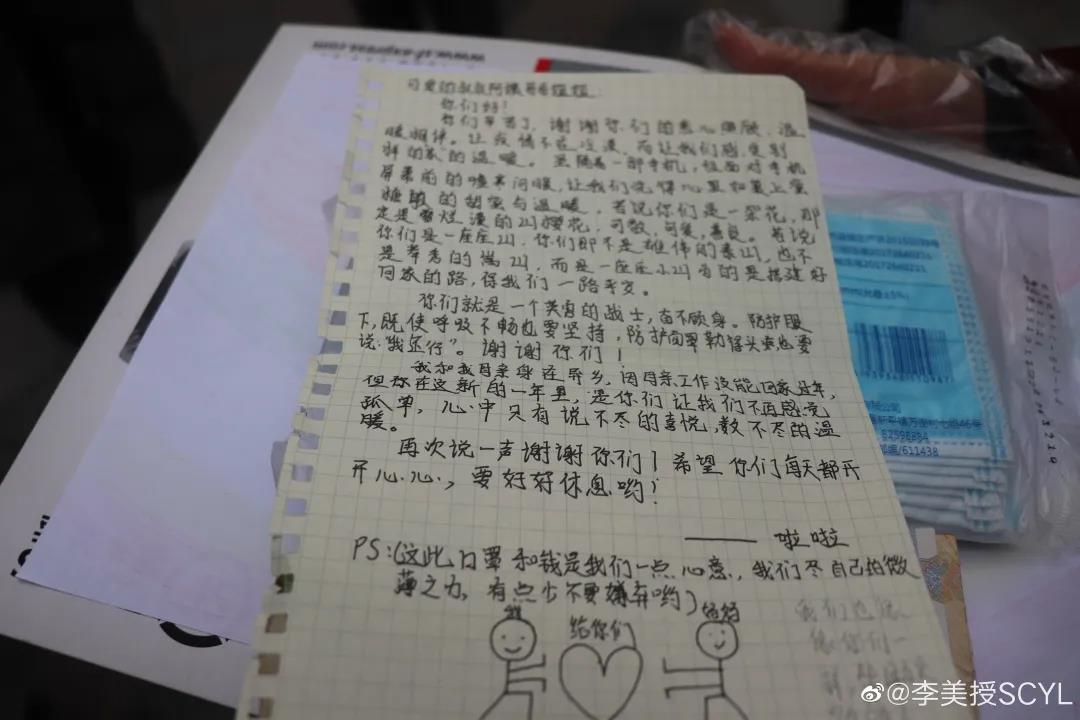 可爱的叔叔阿姨哥哥姐姐:
你们好!
你们辛苦了,谢谢你们的悉心照顾、温
暖相伴。让疫情不在冷漠,而让我们感受到
别样的"家"的温暖。虽隔着一部手机,但面对手机
屏幕前的嘘寒问暖,让我们觉得心里如裹上蜜
糖般的甜蜜与温暖,若说你们是一朵花,那
定是最烂漫的山樱花,可敬,可爱,善良。若说
你们是一座座山,你们即不是雄伟的泰山,也不
是奇秀的嵩山,而是一座座小山为的是搭建好
回家的路,保我们一路平安。
你们就是一个英勇的战士,奋不顾身。防护服
下,既使呼吸不畅也要坚持,防护面罩勒得头疼也要
说"我还行"。谢谢你们!
我和我母亲身在异乡,因母亲工作没能回家过年,
但你在这新的一年里,是你们让我们不再感觉
孤单,心中只有说不尽的喜悦,数不尽的温
暖。
再次说一声谢谢你们!希望你们每天都开
开心心,要好好休息哟!
—— 啦啦
PS:(这些口罩和钱是我们一点心意,我们尽自己的微
薄之力,有点少不要嫌弃哟)
给你们
我们也像
像你们一
www.sf-express.com
20172640221
82598884
611438
@李美授SCYL